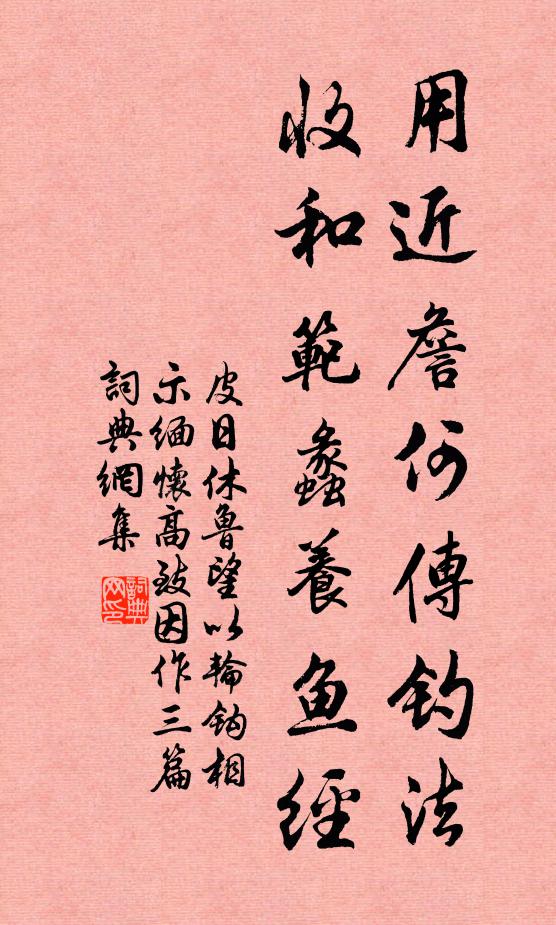 用近詹何傳钓法
收和範蠡養鱼經
皮日休魯望以輪钩相
示缅懷高致因作三篇
詞典網集
詞典网印